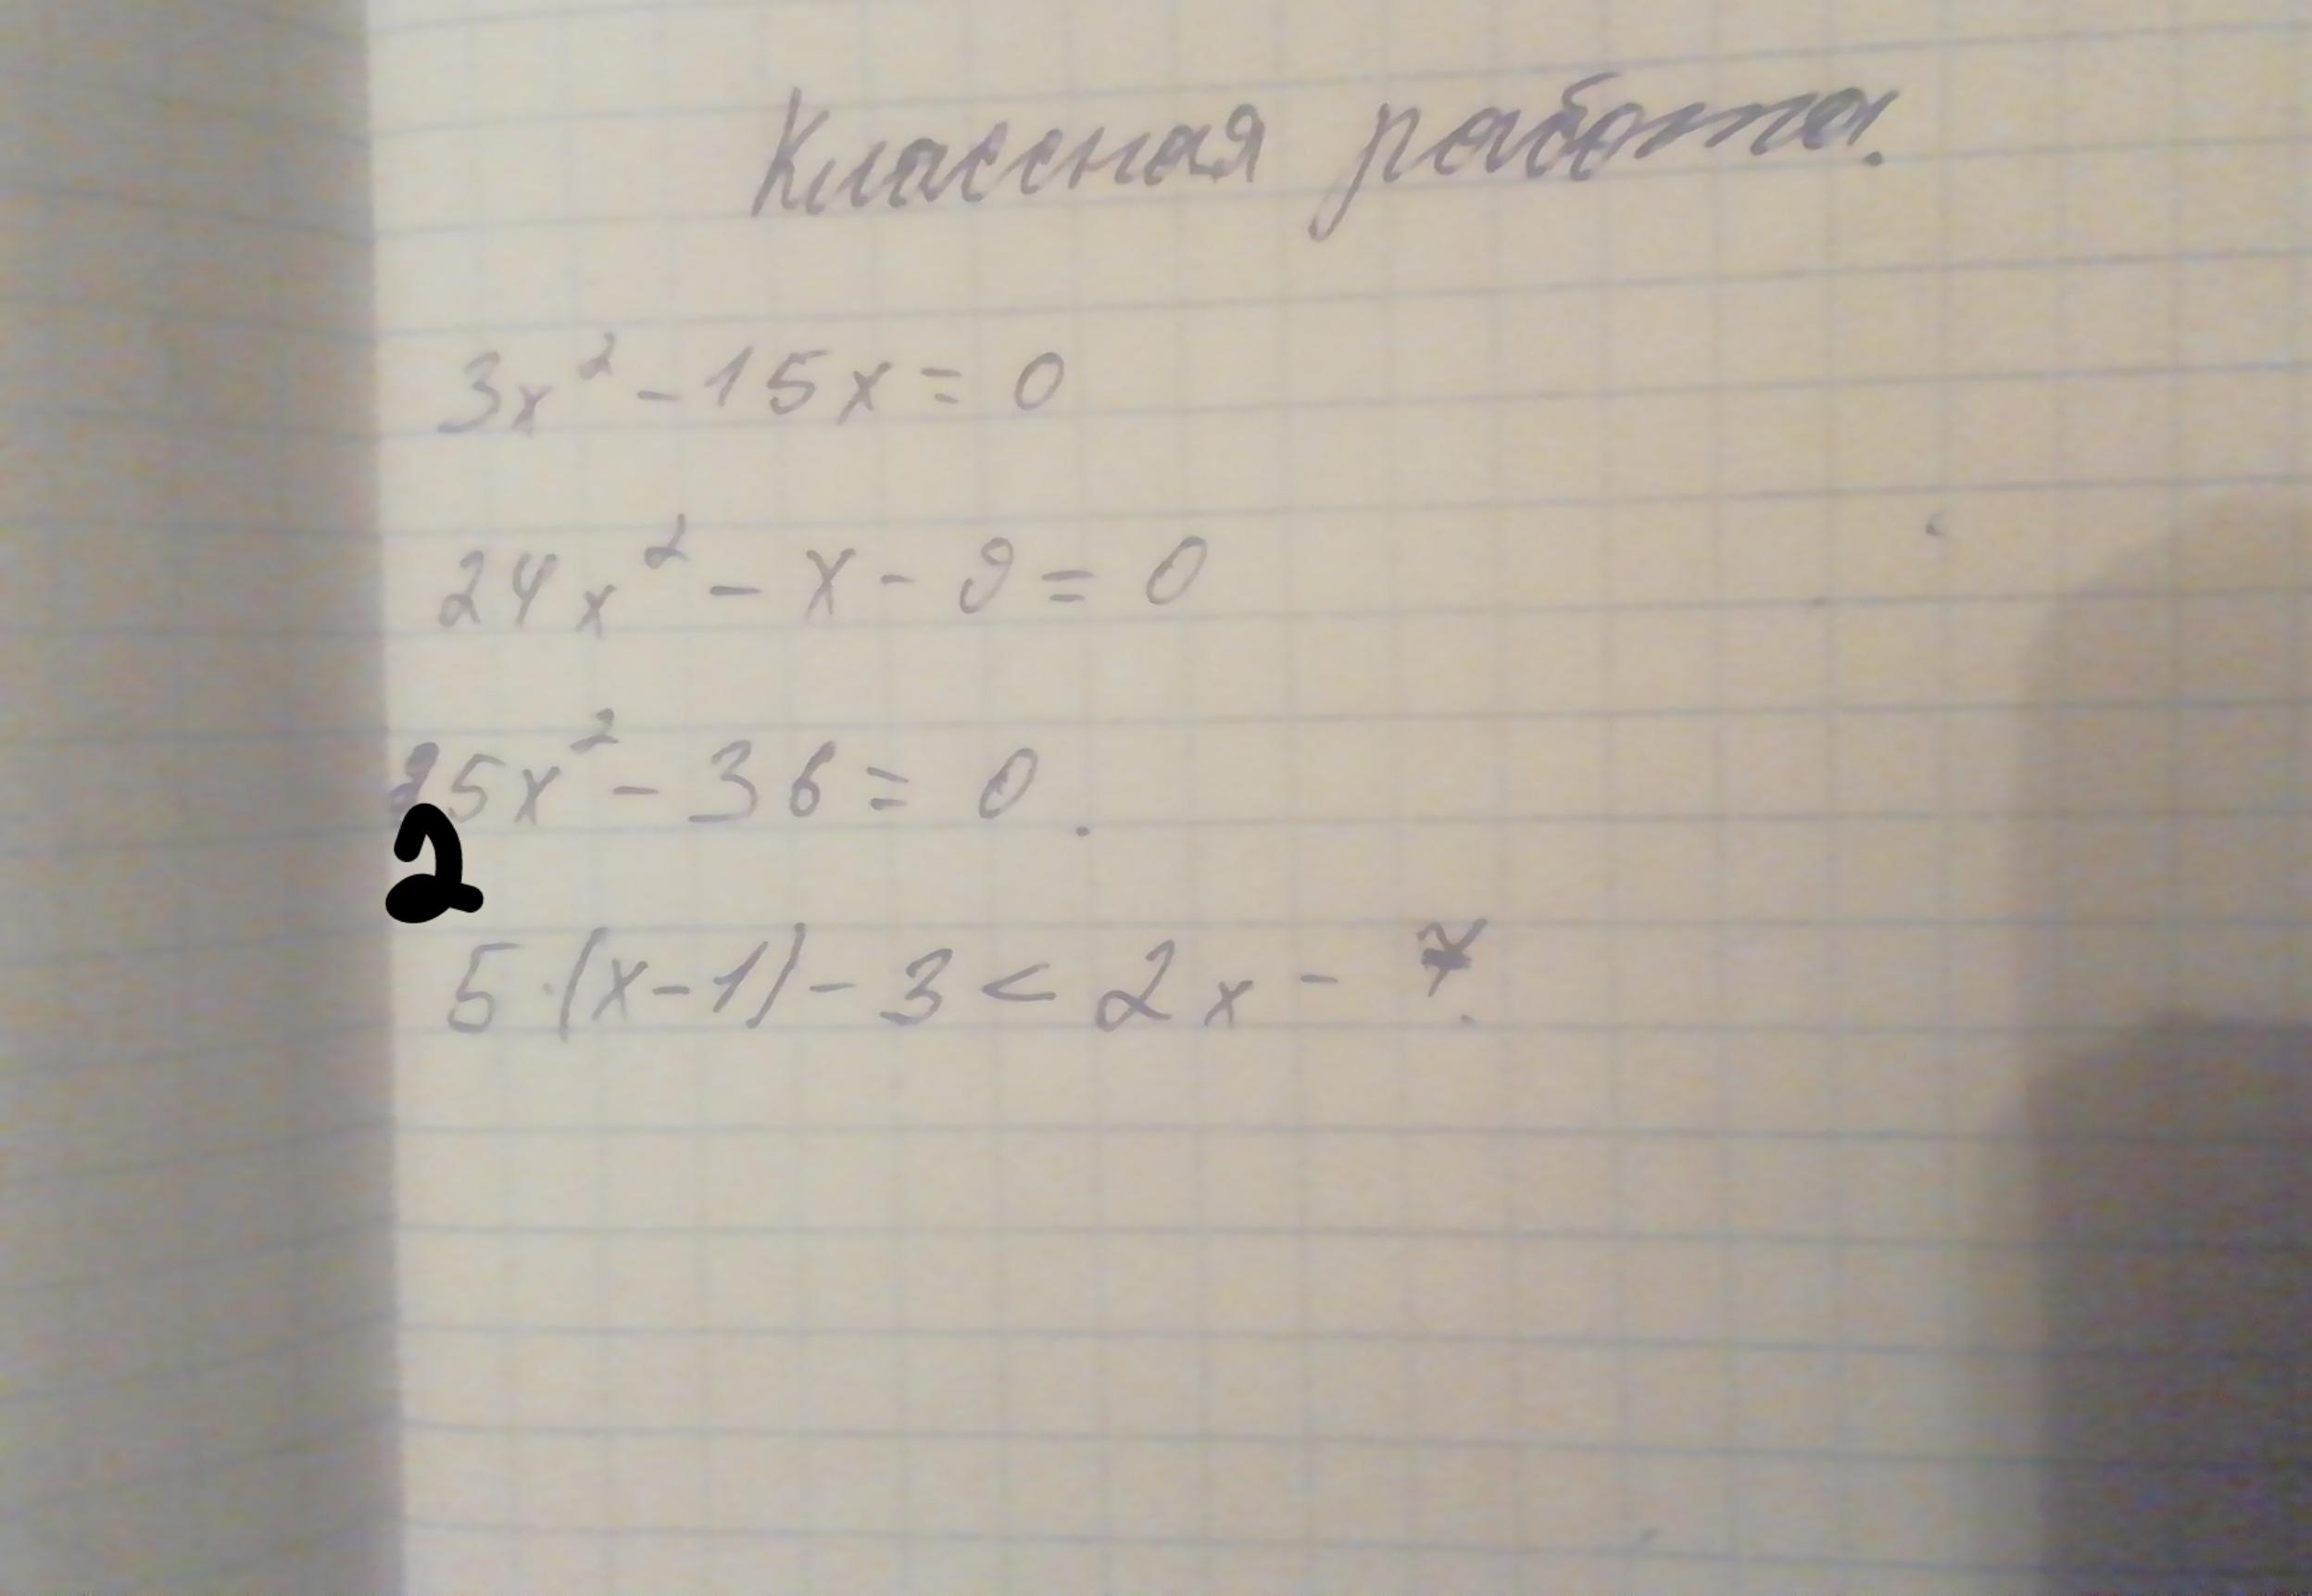 Классная работа.
3x² - 15x = 0
24x² - x - 9 = 0
25x² - 36 = 0.
2
5·(x-1) - 3 < 2x - 7.